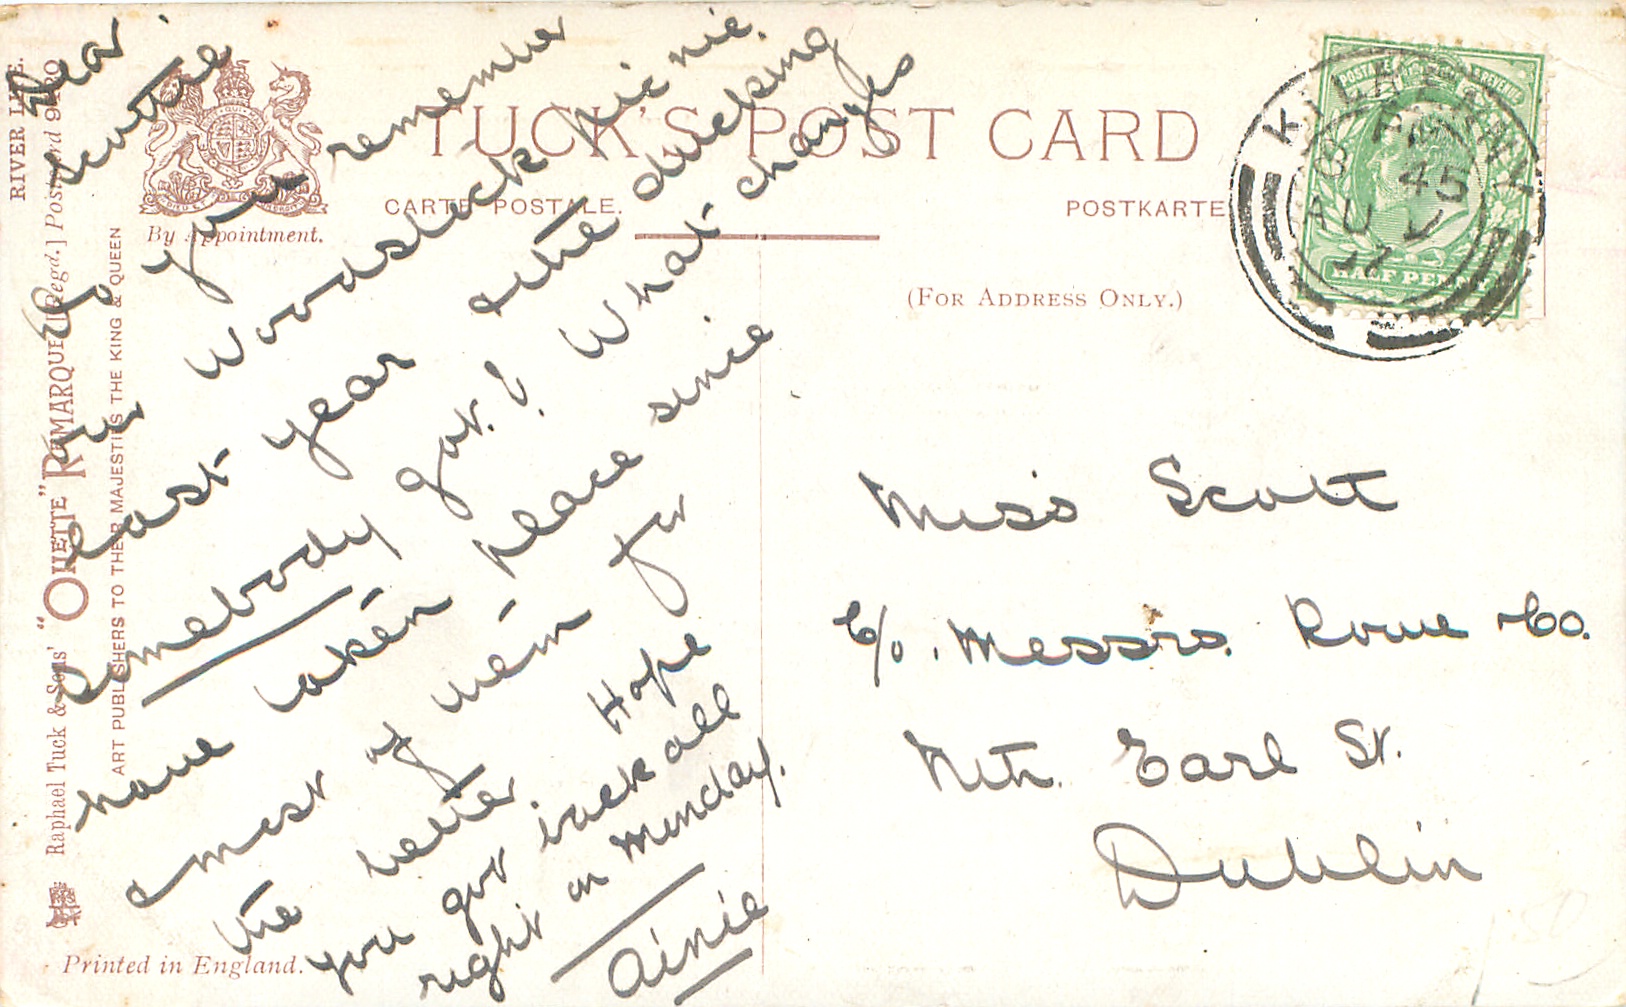 TUCK'S POST CARD
CARTE POSTALE.
POSTKARTE
(FOR ADDRESS ONLY.)
By Appointment.
RIVER LIFE.
Raphael Tuck & Sons' "OILETTE" REMARQUE [Regd.] Postcard
ART PUBLISHERS TO THEIR MAJESTIES THE KING & QUEEN
Printed in England.
POSTAGE REVENUE
HALF PENNY
KILKENNY
45
AU
Dear
Scottie
Do you remember
our Woodstock Nic nic.
last year & the ducking
somebody got.! What changes
have taken place since
& most of them for
the better Hope
you got back all
right on Monday.
Ainie
Miss Scott
C/o. Messrs. Rowe & Co.
Nth. Earl St.
Dublin